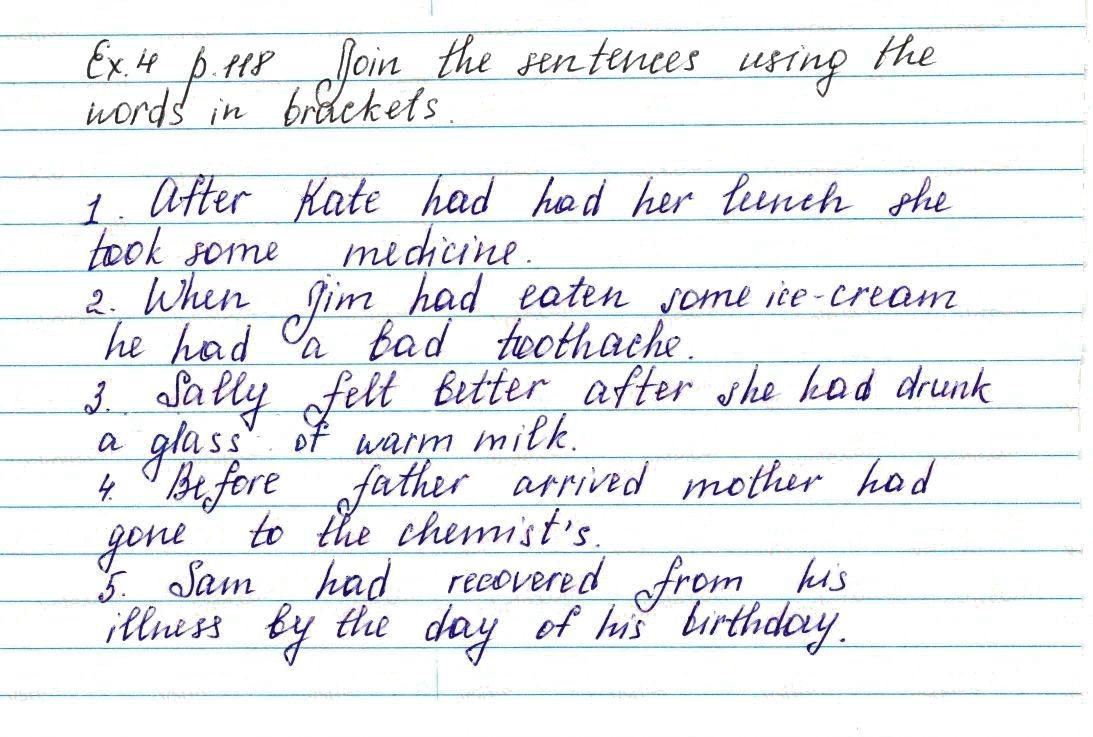 Ex.4 p.118 Join the sentences using the
words in brackets.
1. After Kate had had her lunch she
took some medicine.
2. When Jim had eaten some ice-cream
he had a bad toothache.
3. Sally felt better after she had drunk
a glass of warm milk.
4. Before father arrived mother had
gone to the chemist's.
5. Sam had recovered from his
illness by the day of his birthday.